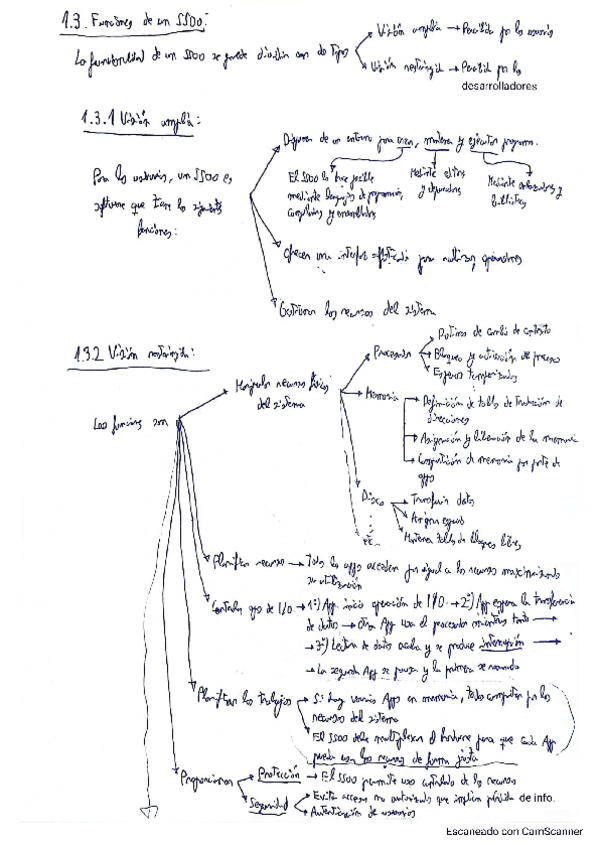 1.3. Funciones de un SSOO:
La funcionalidad de un SSOO se puede dividir en dos tipos
Visión amplia → Percibida por los usuarios
Visión restringida → Percibida por los
desarrolladores
1.3.1 Visión amplia:
Para los usuarios, un SSOO es
software que tiene las siguientes
funciones:
Disponen de un entorno para crear, mantener y ejecutar programas.
El SSOO lo hace posible
mediante lenguajes de programación,
compiladores y ensambladores
Mediante editores
y depuradores
Mediante cargadores y
bibliotecas
Ofrecen una interfaz sofisticada para multiples operadores
Gestionar los recursos del sistema
1.3.2 Visión restringida:
Las funciones son
Manipular recursos físicos
del sistema
Procesador
Rutinas de cambio de contexto
Bloqueo y activación de proceso
Esperas temporizadas
Memoria
Definición de tablas de traducción de
direcciones
Asignación y liberación de la memoria
Compartición de memoria por parte de
apps
Disco
Transferir datos
Asignar espacio
Mantener tablas de bloques libres
etc.
Planificar recursos → Todas las apps acceden por igual a los recursos maximizando
su utilización
Controlar ops de I/O → 1º) App. inicia operación de I/O → 2º) App espera la transferencia
de datos → Otra App usa el procesador mientras tanto →
→ 3º) Lectura de datos acaba y se produce interrupción →
→ La segunda App se pausa y la primera se reanuda
Planificar los trabajos
Si hay varias Apps en memoria, todas compiten por los
recursos del sistema
El SSOO debe multiplexar el hardware para que cada App
pueda usar los recursos de forma justa
Proporcionar
Protección → El SSOO permite uso controlado de los recursos
Seguridad
Evita accesos no autorizados que implican pérdida de info.
Autenticación de usuarios
Escaneado con CamScanner